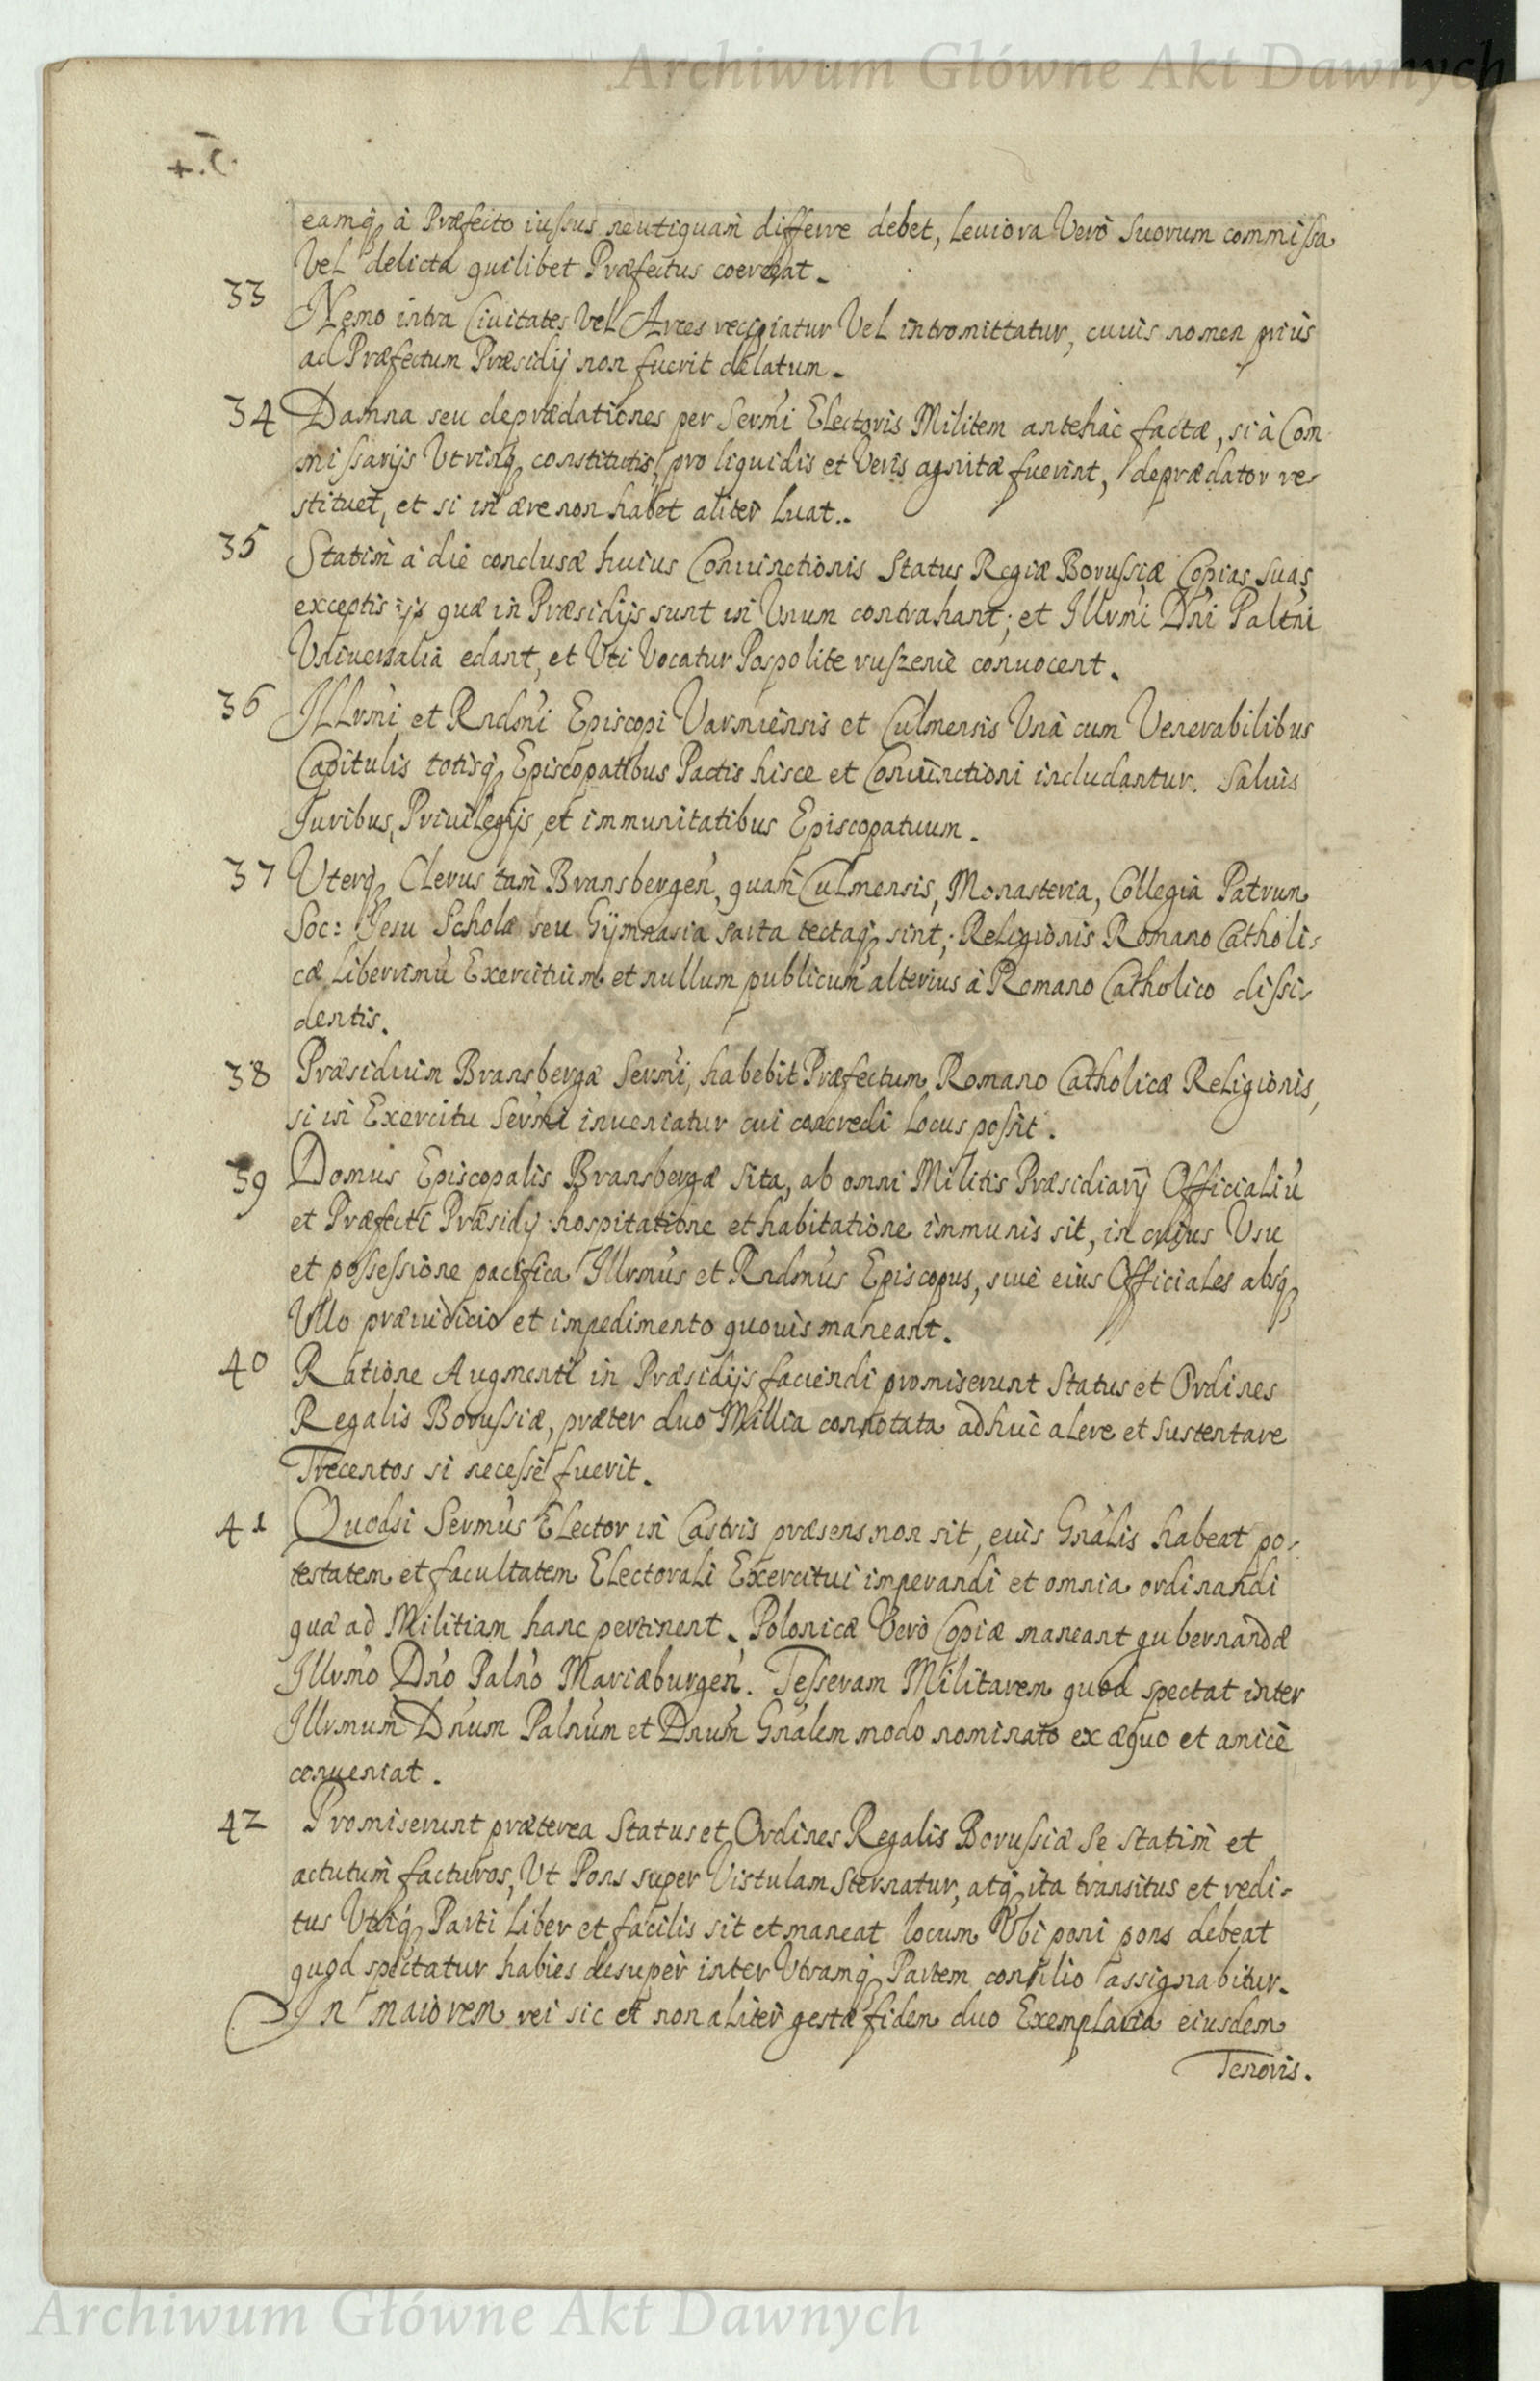 Archiwum Główne Akt Dawnych
eamq, à Præfecto iussus neutiquam differre debet, leuiora Verò Suorum commissa
Vel delicta quilibet Præfectus coerceat.
33 Nemo intra Ciuitates Vel Arces recipiatur Vel intromittatur, cuius nomen prius
ad Præfectum Præsidij non fuerit delatum.
34 Damna seu deprædationes per Sermi Electoris Militem antehàc factæ, si à Com
missarijs Utrinq, constitutis, pro liquidis et Veris agnitæ fuerint, deprædator re-
stituet, et si in ære non habet aliter luat.
35 Statim à die conclusæ huius Coniunctionis Status Regiæ Borussiæ Copias Suas
exceptis ijs quæ in Præsidijs sunt in Unum contrahant; et Illvmi Dni Paltni
Universalia edant, et Uti Vocatur Pospolite ruszenie conuocent.
36 Illvmi et Rndmi Episcopi Varmiensis et Culmensis Unà cum Venerabilibus
Capitulis totisq, Episcopatibus Pactis hisce et Coniunctioni includantur. Saluis
Juribus, Priuilegijs, et immunitatibus Episcopatuum.
37 Uterq, Clerus tam Bransbergen, quam Culmensis, Monasteria, Collegia Patrum
Soc: Jesu Scholæ seu Gÿmnasia sarta tectaq, sint; Religionis Romano Catholi-
cæ liberrimu Exercitium et nullum publicum alterius à Romano Catholico dissi-
dentis.
38 Præsidium Bransbergæ Sermi, habebit Præfectum Romano Catholicæ Religionis,
si in Exercitu Sermi inueniatur cui concredi locus possit.
39 Domus Episcopalis Bransbergæ Sita, ab omni Militis Præsidiarÿ Officialiu
et Præfecti Præsidÿ hospitatione et habitatione immunis sit, in cuius Usu
et possessione pacifica Illrmus et Rndmus Episcopus, siue eius Officiales absq,
Ullo præiudicio et impedimento quouis maneant.
40 Ratione Augmenti in Præsidijs faciendi promiserunt Status et Ordines
Regalis Borussiæ, præter duo Millia connotata adhuc alere et sustentare
Trecentos si necesse fuerit.
41 Quodsi Sermus Elector in Castris præsens non sit, eius Gnalis habeat po-
testatem et facultatem Electorali Exercitui imperandi et omnia ordinandi
quæ ad Militiam hanc pertinent. Polonicæ Verò Copiæ maneant gubernandæ
Illvmo Dno Palno Mariæburgen. Tesseram Militarem quod spectat inter
Illrmum Dnum Palnum et Dnum Gnalem modo nominato ex æquo et amicè
conueniat.
42 Promiserunt præterea Status et Ordines Regalis Borussiæ Se statim et
actutum facturos, Ut Pons super Vistulam Sternatur, atq, ita transitus et redi-
tus Utriq, Parti liber et facilis sit et maneat locum Ubi poni pons debeat
quod spectatur habies desuper inter Utramq, Partem consilio assignabitur.
In maiorem rei sic et non aliter gestæ fidem duo Exemplaria eiusdem
Tenoris.
Archiwum Główne Akt Dawnych